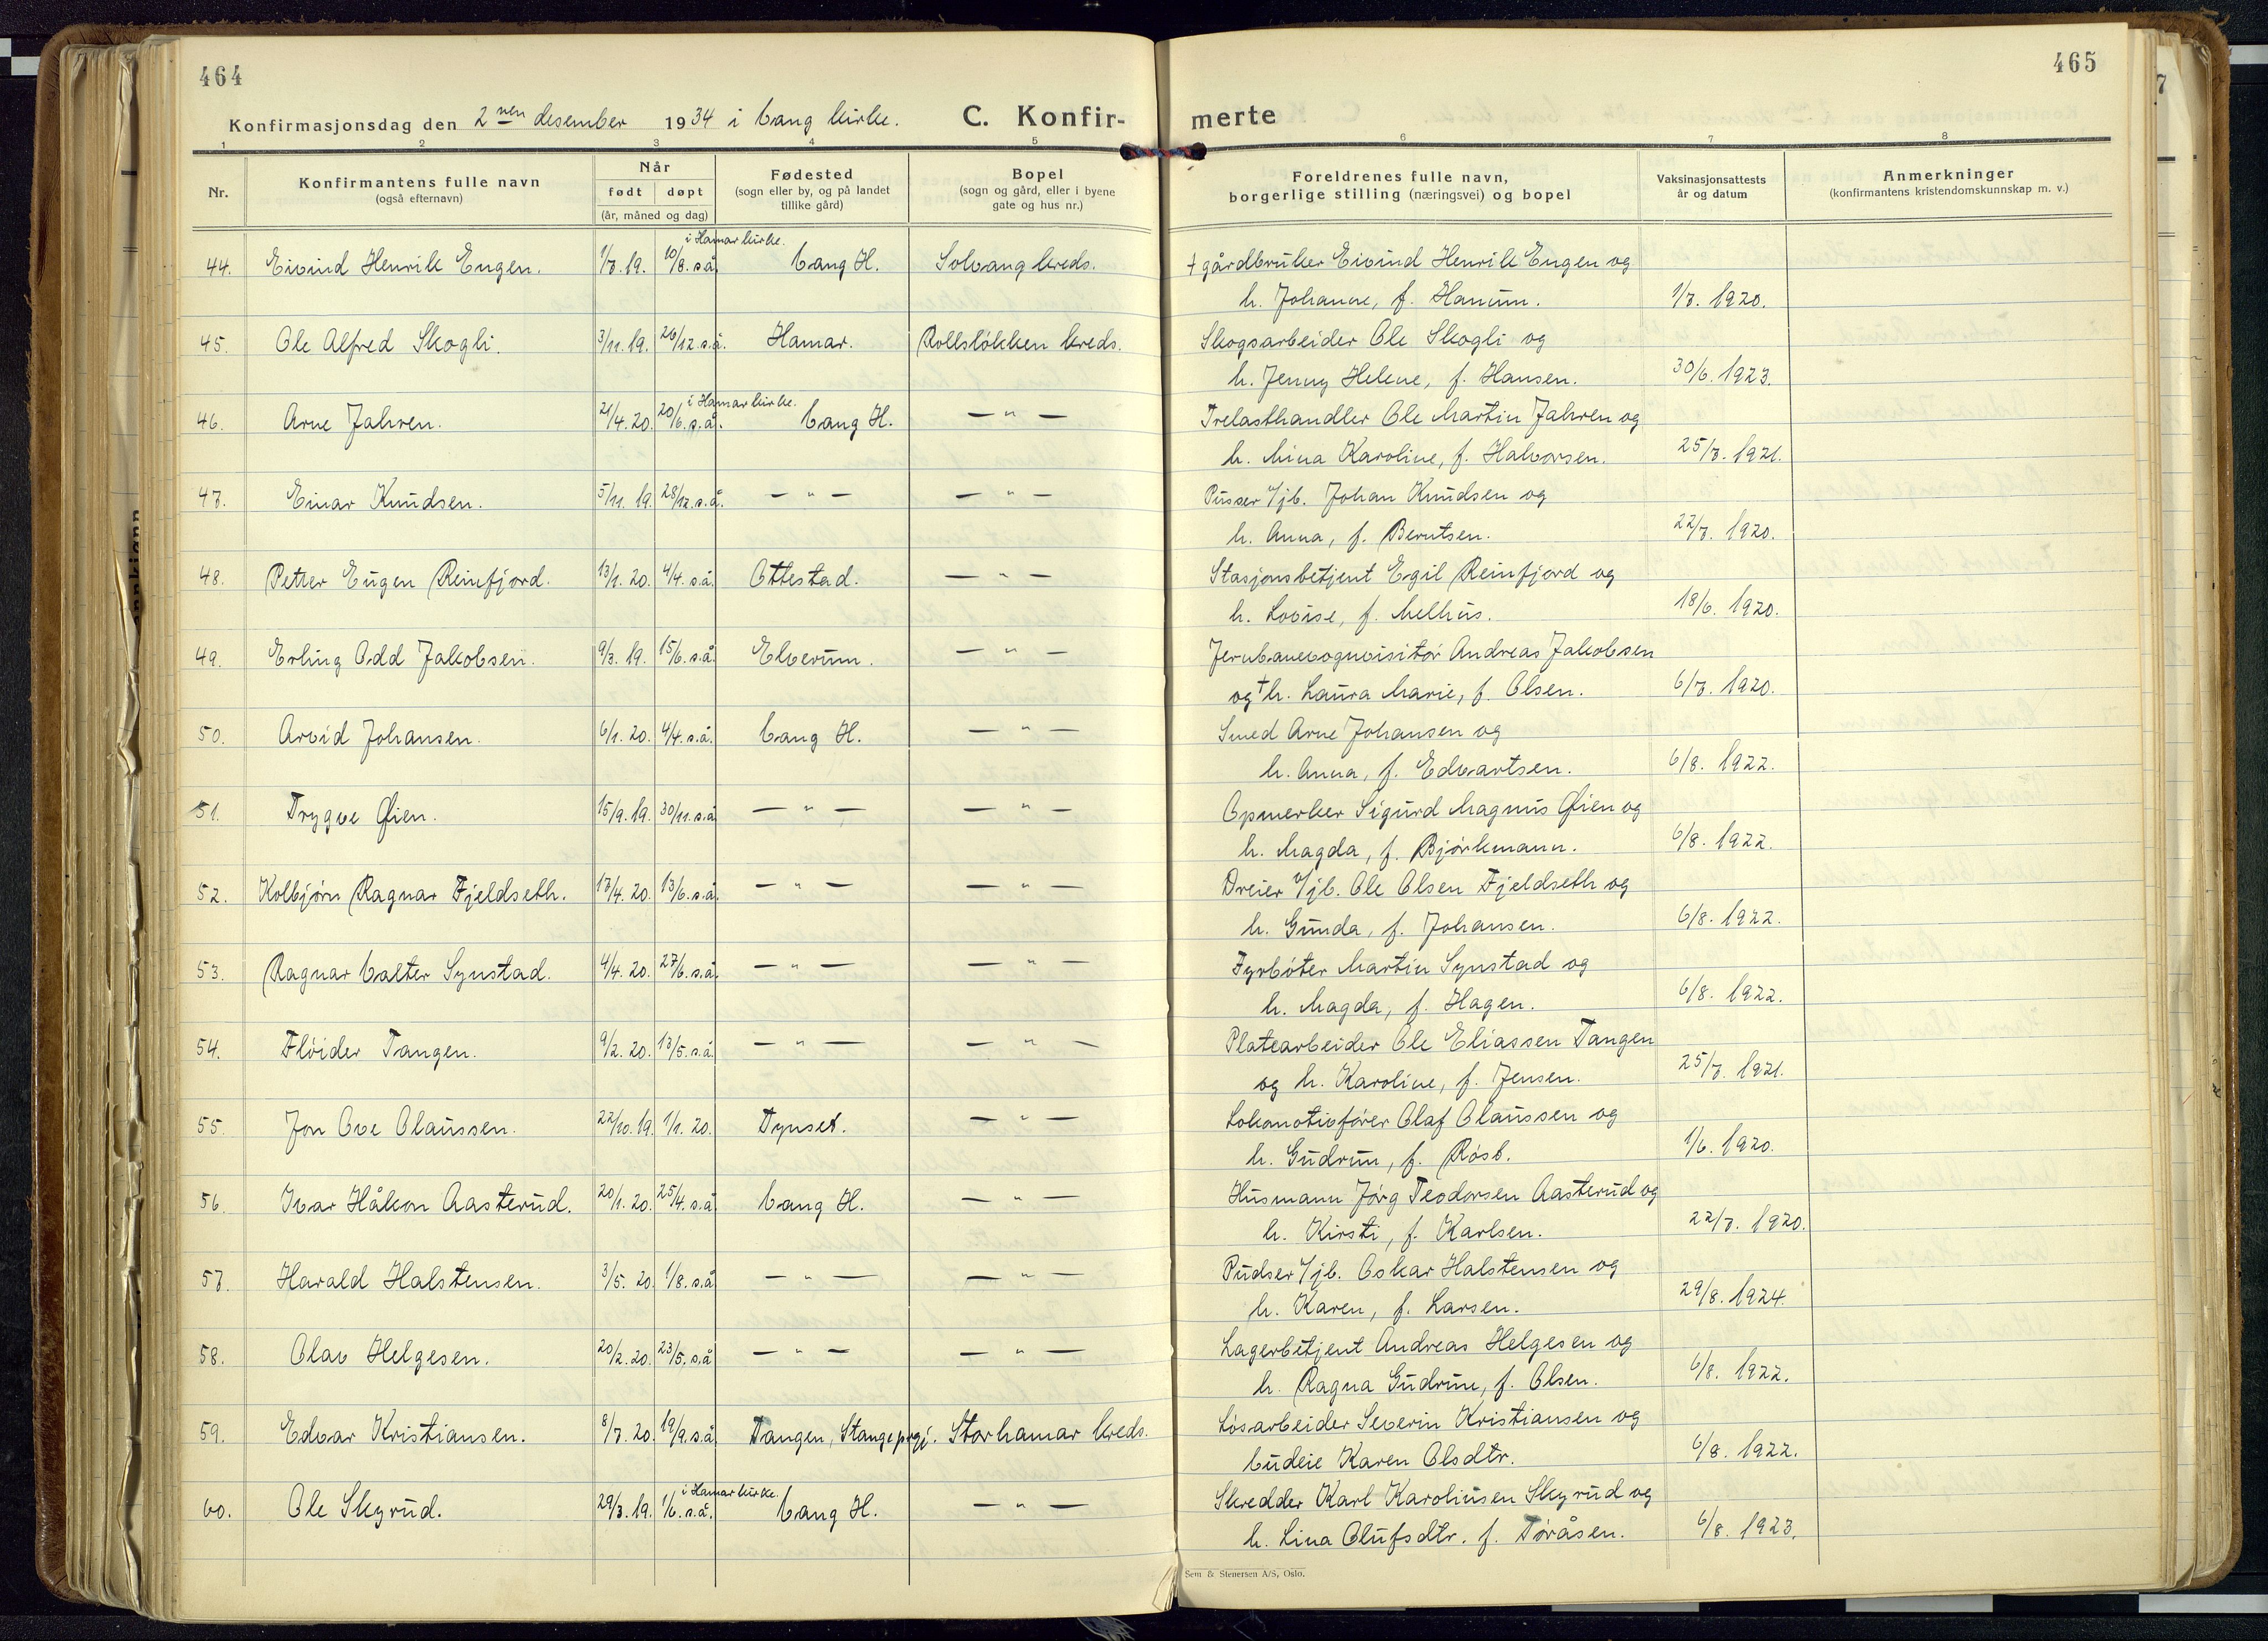 464
465
Konfirmasjonsdag den 2nen desember 1934 i Vang kirke. C. Konfir- merte
1 2 3 4 5 6 7 8
Nr. Konfirmantens fulle navn (også efternavn) Når født døpt (år, måned og dag) Fødested (sogn eller by, og på landet tillike gård) Bopel (sogn og gård, eller i byene gate og hus nr.) Foreldrenes fulle navn, borgerlige stilling (næringsvei) og bopel Vaksinasjonsattests år og datum Anmerkninger (konfirmantens kristendomskunnskap m. v.)
i Hamar kirke.
44. Eivind Henrik Engen. 1/7.19. 10/8. s.å. Vang H. Solvang kreds. † gårdbruker Eivind Henrik Engen og
h. Johanne, f. Hanum. 1/7. 1920.
45. Ole Alfred Skogli. 3/11.19. 26/12. s.å. Hamar. Rollsløkken kreds. Skogsarbeider Ole Skogli og
h. Jenny Helene, f. Hansen. 30/6. 1923.
i Hamar kirke.
46. Arne Jahren. 21/4.20. 20/6. s.å. Vang H. — " — Trelasthandler Ole Martin Jahren og
h. Mina Karoline, f. Halvorsen. 25/7. 1921.
47. Einar Knudsen. 5/11.19. 28/12. s.å. — " — — " — Pusser v/jb. Johan Knudsen og
h. Anna, f. Berntsen. 22/7. 1920.
48. Petter Eugen Reinfjord. 13/1.20. 4/4. s.å. Ottestad. — " — Stasjonsbetjent Egil Reinfjord og
h. Lovise, f. Melhus. 18/6. 1920.
49. Erling Odd Jakobsen. 9/3.19. 15/6. s.å. Elverum. — " — Jernbanevognvisitør Andreas Jakobsen
og † h. Laura Marie, f. Olsen. 6/7. 1920.
50. Arvid Johansen. 6/1.20. 4/4. s.å. Vang H. — " — Smed Arne Johansen og
h. Anna, f. Edvartsen. 6/8. 1922.
51. Trygve Øien. 15/9.19. 30/11. s.å. — " — — " — Opmerker Sigurd Magnus Øien og
h. Magda, f. Bjørkmann. 6/8. 1922.
52. Kolbjørn Ragnar Fjeldseth. 17/4.20. 13/6. s.å. — " — — " — Dreier v/jb. Ole Olsen Fjeldseth og
h. Gunda, f. Johansen. 6/8. 1922.
53. Ragnar Valter Synstad. 4/4.20. 27/6. s.å. — " — — " — Fyrbøter Martin Synstad og
h. Magda, f. Hagen. 6/8. 1922.
54. Fløider Tangen. 9/2.20. 13/5. s.å. — " — — " — Platearbeider Ole Eliassen Tangen
og h. Karoline, f. Jensen. 25/7. 1921.
55. Jon Ove Olaussen. 22/10.19. 1/1. 20. Tynset. — " — Lokomotivfører Olaf Olaussen og
h. Gudrun, f. Røsb. 1/6. 1920.
56. Ivar Håkon Aasterud. 20/1.20. 25/4. s.å. Vang H. — " — Husmann Jørg Teodorsen Aasterud og
h. Kirsti, f. Karlsen. 22/7. 1920.
57. Harald Halstensen. 3/5.20. 1/8. s.å. — " — — " — Pudser v/jb. Oskar Halstensen og
h. Karen, f. Larsen. 29/8. 1924.
58. Olav Helgesen. 20/2.20. 23/5. s.å. — " — — " — Lagerbetjent Andreas Helgesen og
h. Ragna Gudrun, f. Olsen. 6/8. 1922.
59. Edvar Kristiansen. 8/7.20. 19/9. s.å. Tangen, Stange prgj. Storhamar kreds. Løsarbeider Severin Kristiansen og
budeie Karen Olsdtr. 6/8. 1922.
i Hamar kirke.
60. Ole Skyrud. 29/3.19. 1/6. s.å. Vang H. — " — Skredder Karl Karoliusen Skyrud og
h. Lina Olufsdtr. f. Tøråsen. 6/8. 1923.
Sem & Stenersen A/S, Oslo.